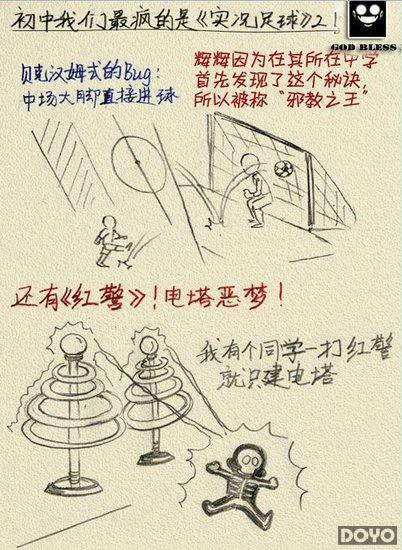 初中我们最疯的是《实况足球》2！
GOD BLESS
贝克汉姆式的Bug:
中场大脚直接进球
辉辉因为在其所在中学
首先发现了这个秘诀,
所以被称“邪教之王”
还有《红警》！电塔恶梦！
我有个同学一打红警
就只建电塔
DOYO